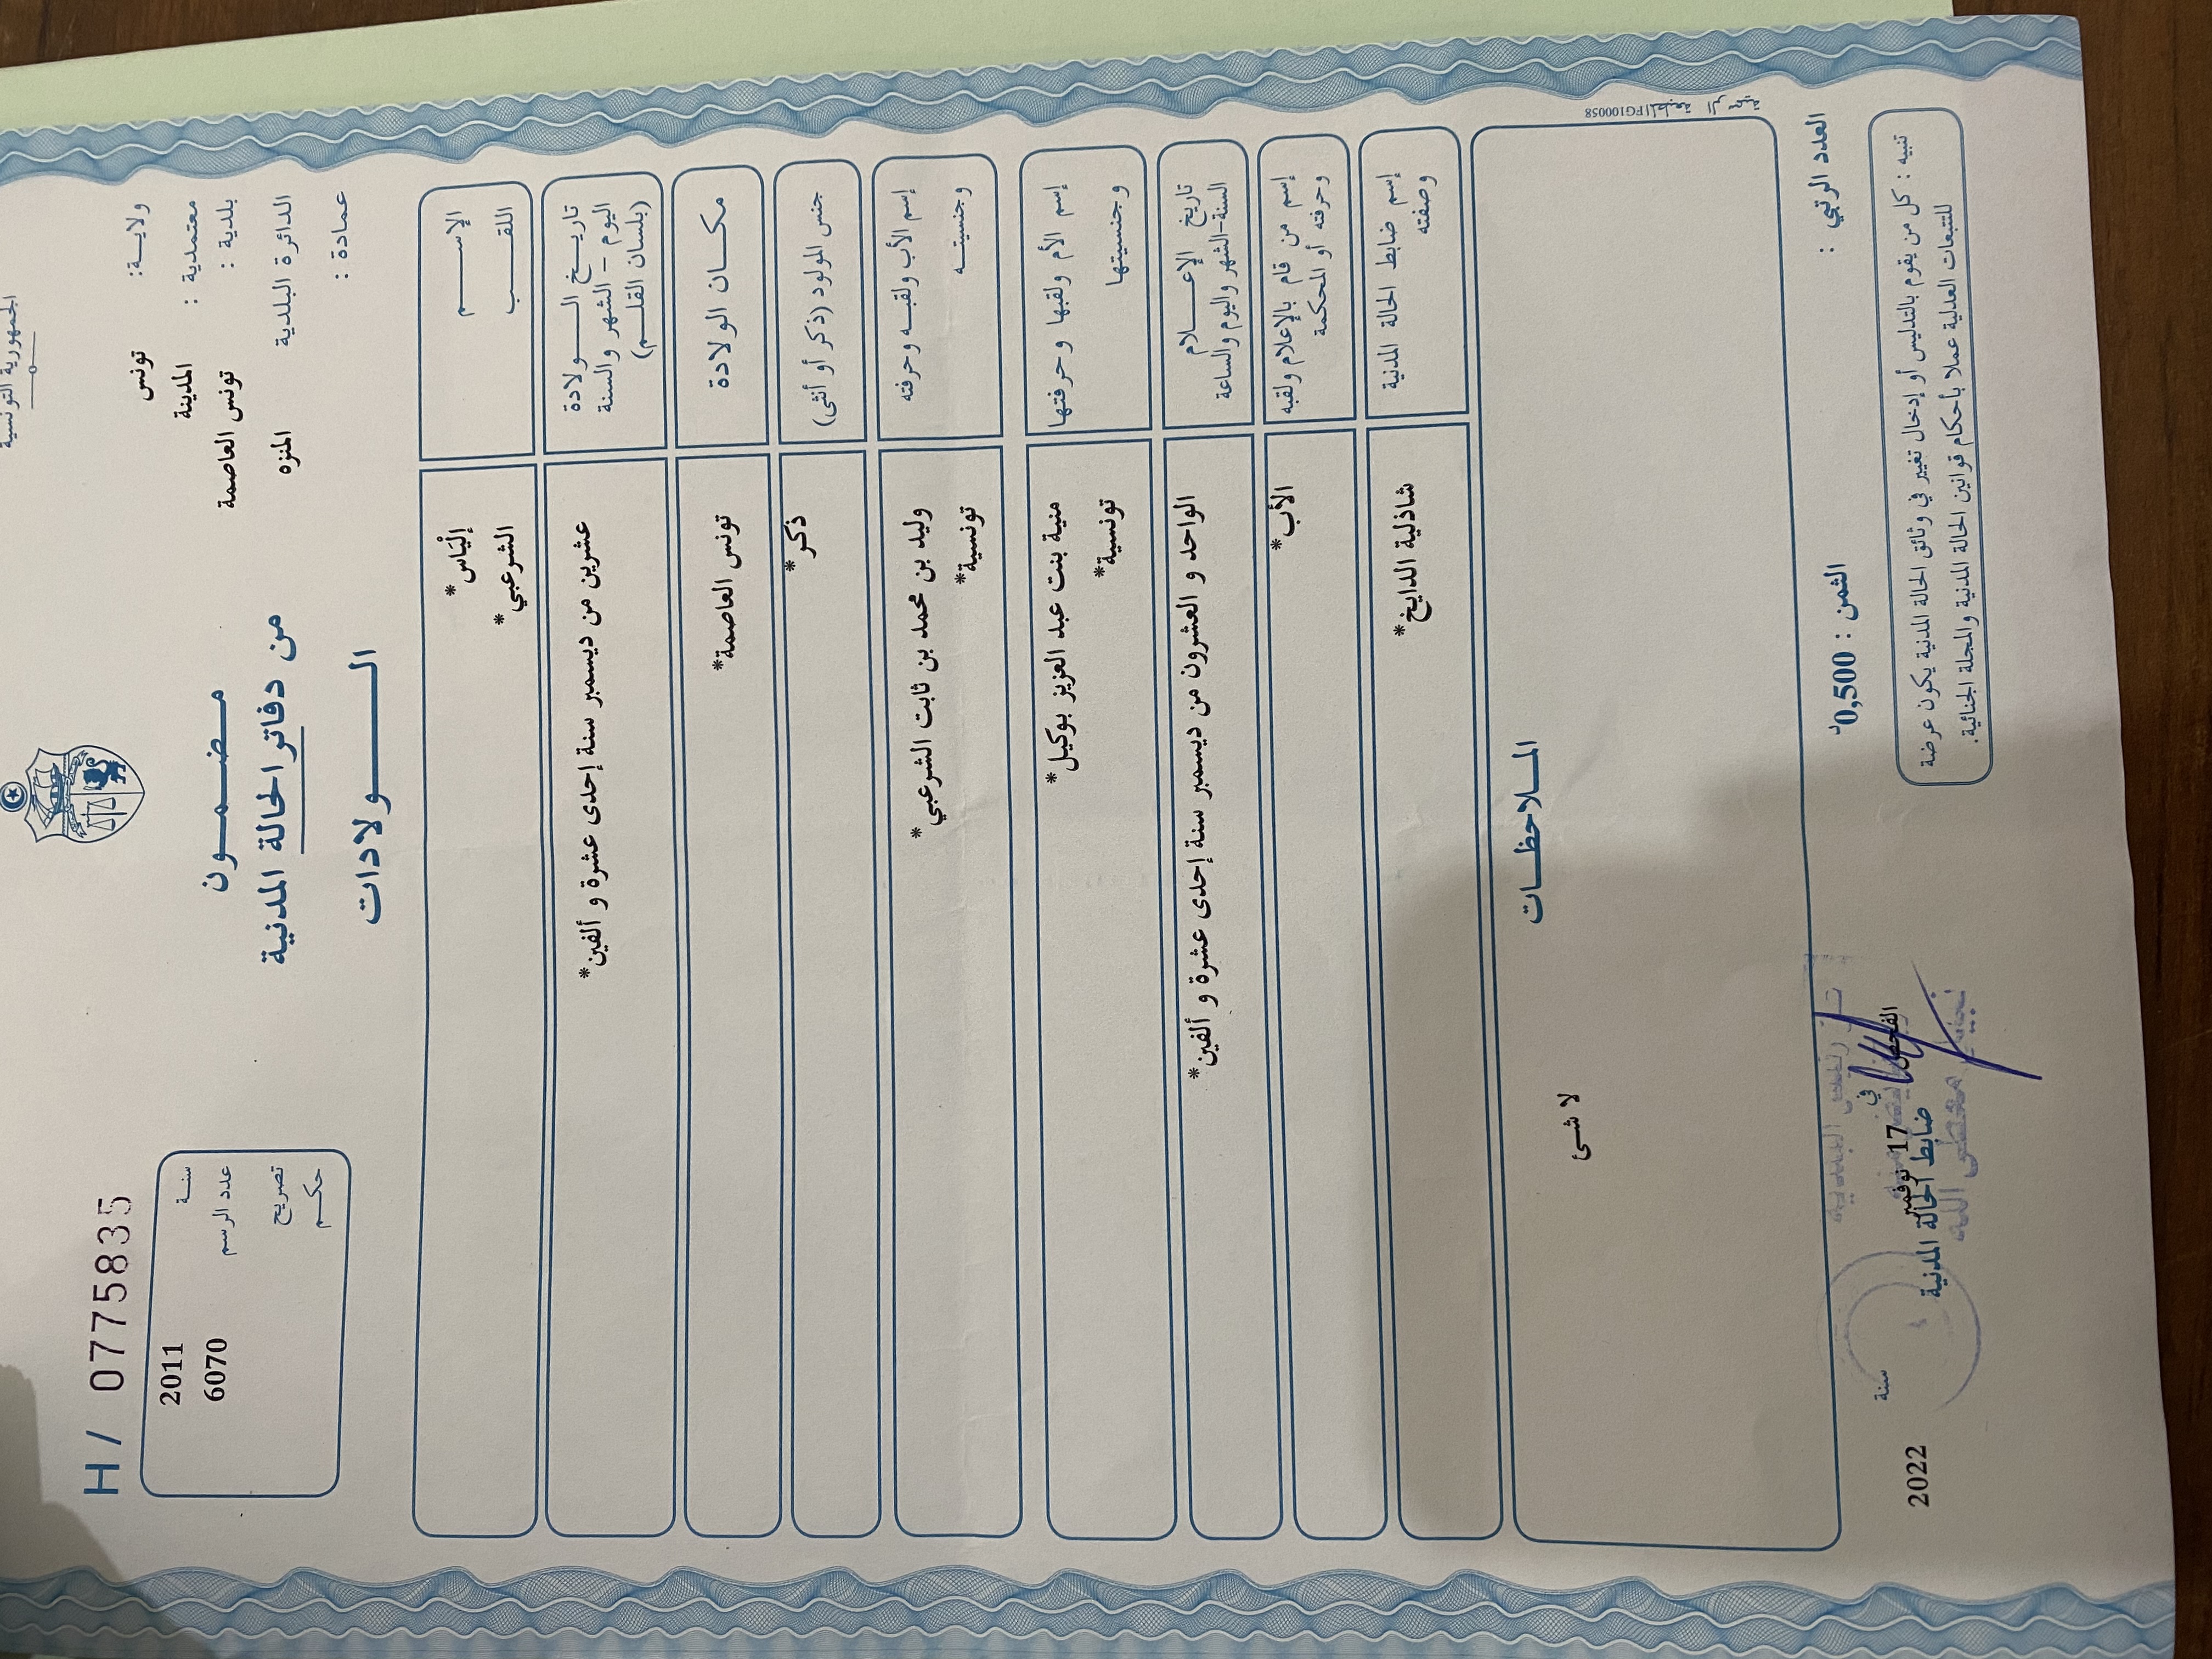 الجمهورية التونسية
ولاية: تونس
معتمدية : المدينة
بلدية : تونس العاصمة
الدائرة البلدية المنزه
عمادة :
H / 0775835
سنة 2011
عدد الرسم 6070
تصريح
حكم
مضمون
من دفاتر الحالة المدنية
الولادات
الإسم إلْيَاس*
اللقب الشرعبي*
تاريخ الولادة
اليوم – الشهر والسنة
(بلسان القلم)
عشرين من ديسمبر سنة إحدى عشرة و ألفين*
مكان الولادة تونس العاصمة*
جنس المولود (ذكر أو أنثى) ذكر*
إسم الأب ولقبه وحرفته وليد بن محمد بن ثابت الشرعبي*
وجنسيته تونسية*
إسم الأم ولقبها وحرفتها منية بنت عبد العزيز بوكيل*
وجنسيتها تونسية*
تاريخ الإعلام
السنة-الشهر واليوم والساعة
الواحد و العشرون من ديسمبر سنة إحدى عشرة و ألفين*
إسم من قام بالإعلام ولقبه
وحرفته أو المحكمة
الأب*
إسم ضابط الحالة المدنية
وصفته
شاذلية الدايخ*
الملاحظات
لا شئ
FG100058
العدد الرتبي :
الثمن : 0,500د
تنبيه : كل من يقوم بالتدليس أو إدخال تغيير في وثائق الحالة المدنية يكون عرضة
للتتبعات العدلية عملا بأحكام قوانين الحالة المدنية والمجلة الجنائية.
في 17 نوفمبر سنة 2022
ضابط الحالة المدنية